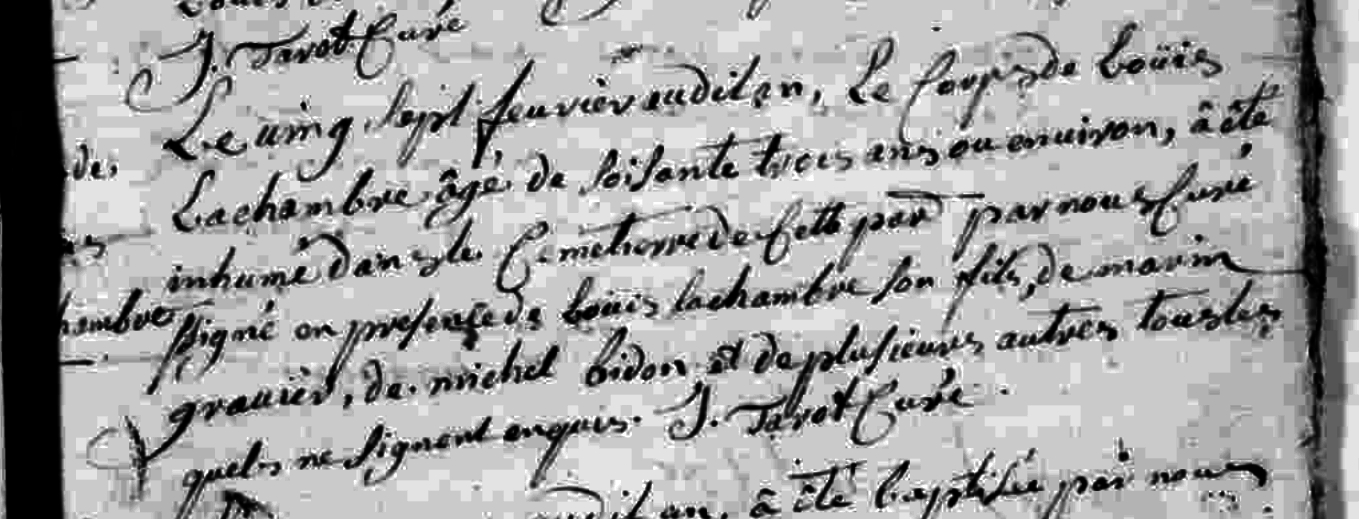 J. Tavot Curé
Le uing sept feuvier audit an, Le Corps de Loüis
de,
Lachambre âgé de soisante trois ans ou enuiron, â êté
inhumé dans le Cemetierre de Cette par͞ par nous Curé
hambre
ssigné en presençe de Loüis lachambre son fils, de marin
grauier, de michel bidon et de plusieurs autres tous les
quels ne signent enquis. J. Tavot Curé.
audit an, â êté baptisée par nous